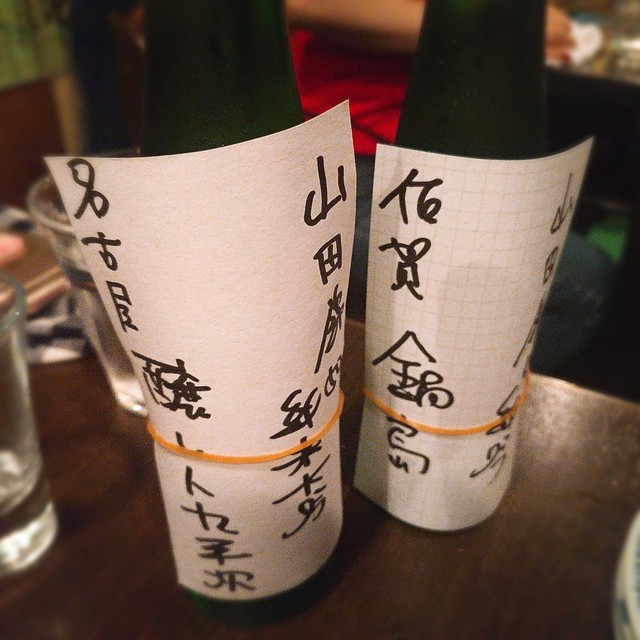 山田 純米大吟
名古屋 醸し人九平次
山田
佐賀 鍋島